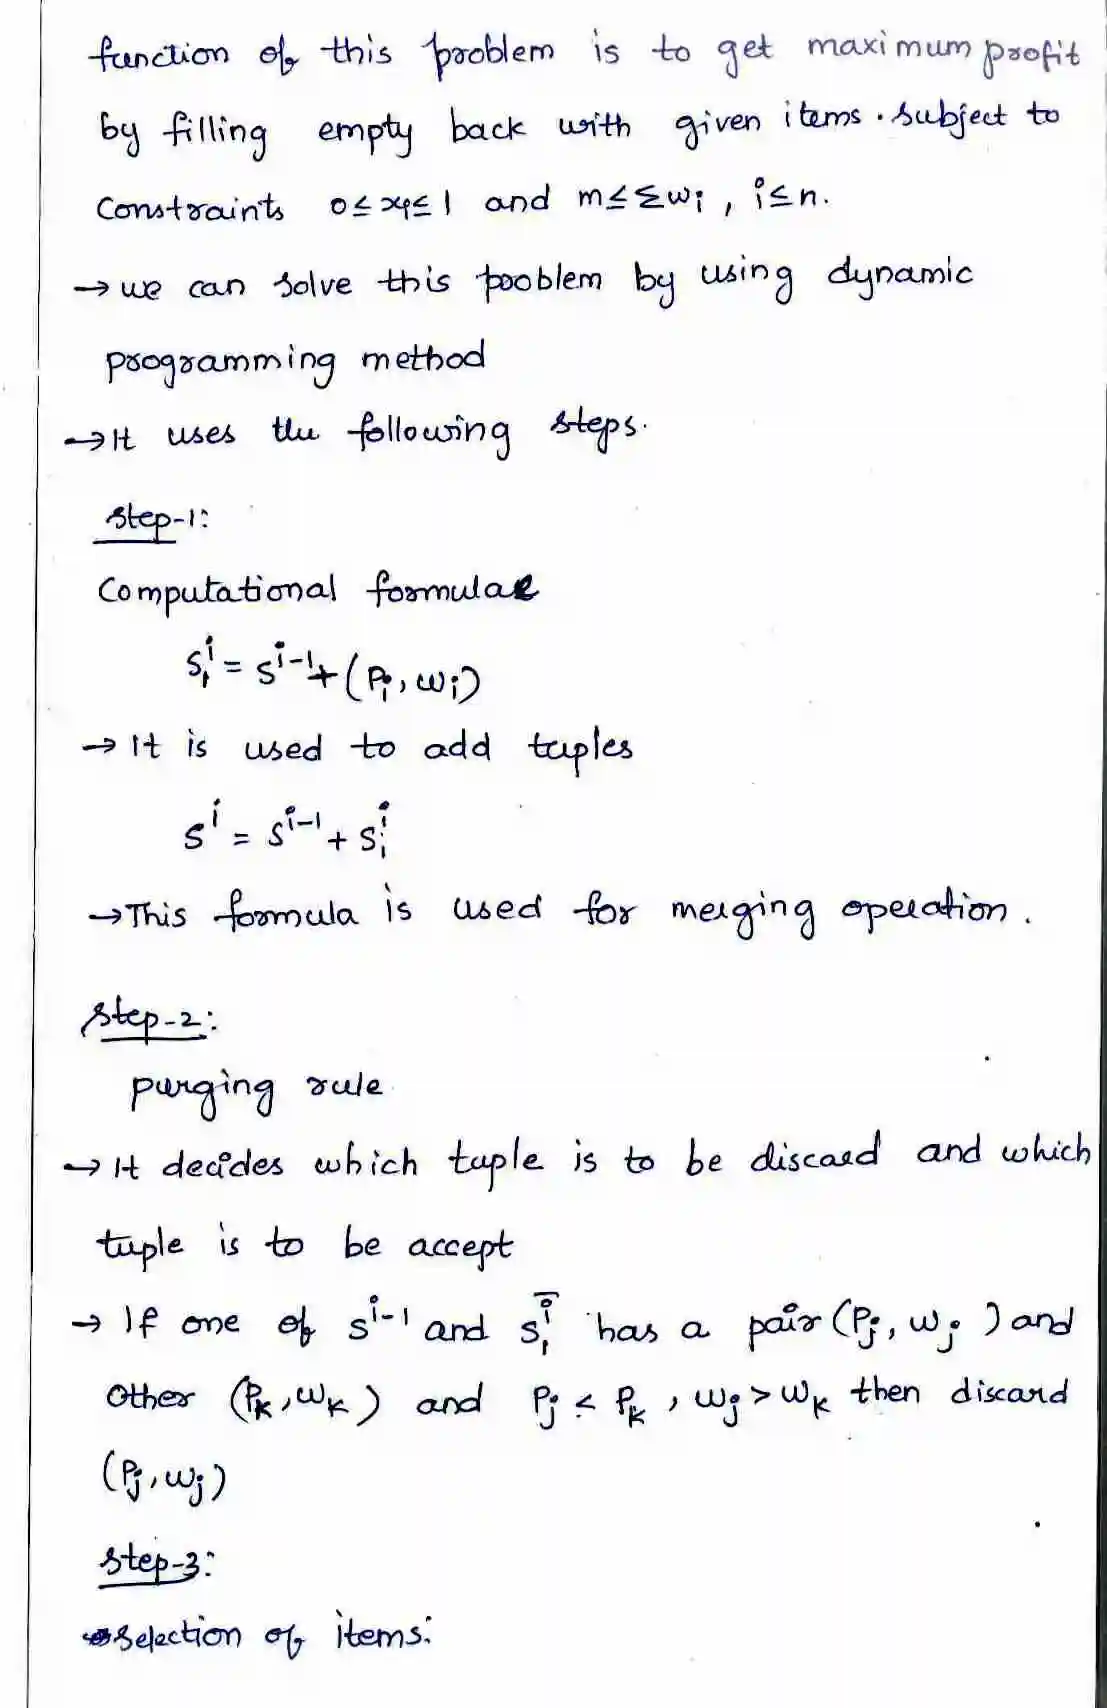 function of this problem is to get maximum profit
by filling empty back with given items. subject to
Constraints 0≤xi≤1 and m≤Σwi, i≤n.
→ we can solve this problem by using dynamic
programming method
→ It uses the following steps.
Step-1:
Computational formulae
S₁ⁱ = Sⁱ⁻¹ + (Pi, wi)
→ It is used to add tuples
Sⁱ = Sⁱ⁻¹ + S₁ⁱ
→ This formula is used for merging operation.
Step-2:
purging rule
→ It decides which tuple is to be discard and which
tuple is to be accept
→ If one of Sⁱ⁻¹ and S₁ⁱ has a pair (Pj, wj) and
Other (Pk, wk) and Pj ≤ Pk, wj > wk then discard
(Pj, wj)
Step-3:
Selection of items: